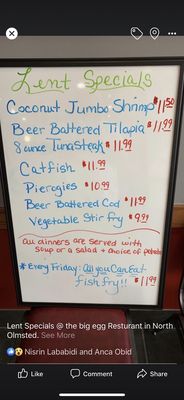 Lent Specials
Coconut Jumbo Shrimp $11.50
Beer Battered Tilapia $11.99
8 ounce Tuna Steak $11.99
Catfish $11.99
Pierogies $10.99
Beer Battered Cod $11.99
Vegetable Stir fry $9.99
all dinners are served with
soup or a salad + choice of potato
*Every Friday: All you Can Eat
fish fry!! $11.99
Lent Specials @ the big egg Resturant in North
Olmsted. See More
Nisrin Lababidi and Anca Obid
Like Comment Share